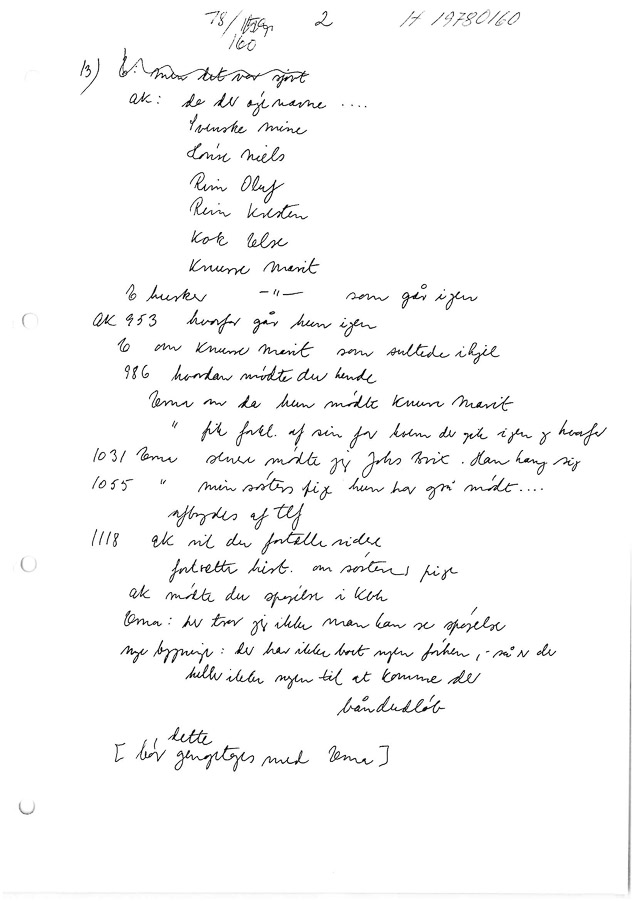 78/
160
2
H 19780160
13) E: men det var sjovt
ak: da der øgenavne ....
Svenske mine
Niels
Rein Oluf
Rein Kresten
Kok Else
Knurre Marit
E husker —"— som går igen
AK 953 hvorfor går hun igen
E om Knurre Marit som sultede ihjel
986 hvordan mødte du hende
Erna om da hun mødte Knurre Marit
" fik forkl. af sin far hvem der gik igen og hvorfor
1031 Erna senere mødte jeg Johs Brix. Han hang sig
1055 " min søsters pige hun har også mødt....
afbrydes af tlf
1118 ak vil du fortælle videre
fortsætte hist. om søsters pige
ak mødte du spøgelse i Kbh
Erna: her tror jeg ikke man kan se spøgelse
nye bygninger: der har ikke boet nogen førhen, - så er der
heller ikke nogen til at komme der
båndudløb
[ bør dette gengptages med Erna ]